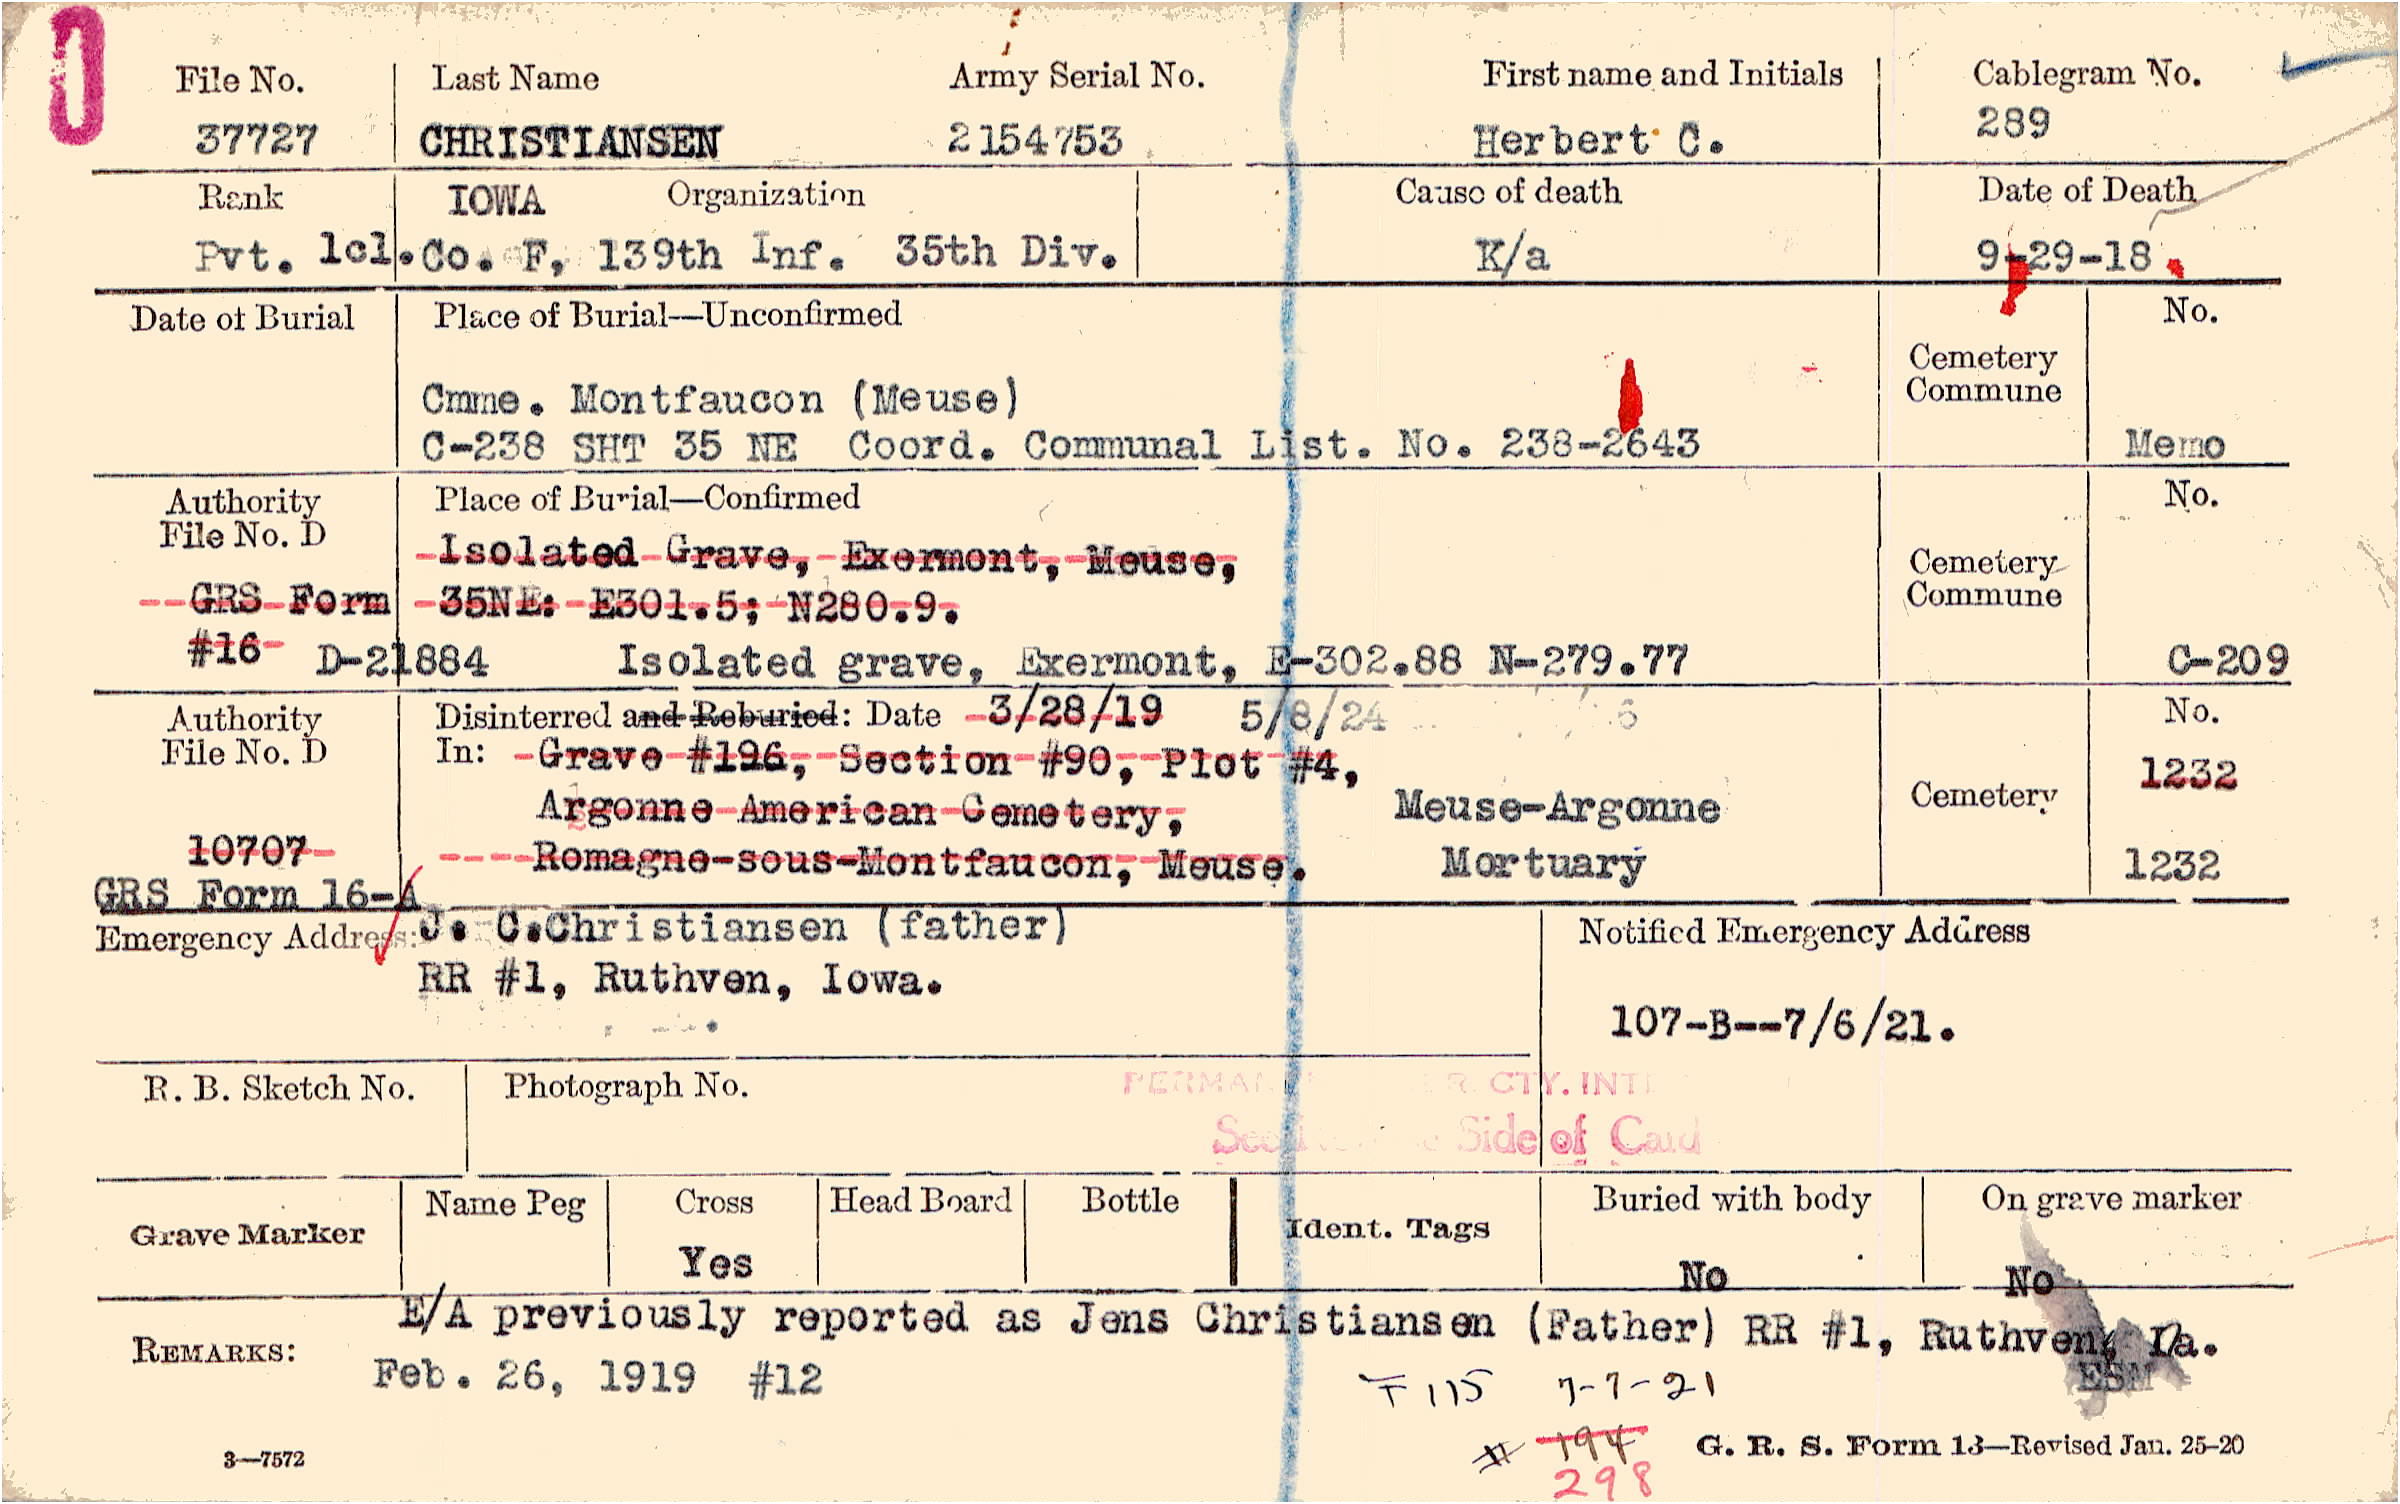 File No. Last Name Army Serial No. First name and Initials Cablegram No.
37727 CHRISTIANSEN 2154753 Herbert C. 289
Rank IOWA Organization Cause of death Date of Death
Pvt. 1cl. Co. F, 139th Inf. 35th Div. K/a 9-29-18
Date of Burial Place of Burial—Unconfirmed No.
Cemetery
Commune
Cmme. Montfaucon (Meuse)
C-238 SHT 35 NE Coord. Communal List. No. 238-2643 Memo
Authority Place of Burial—Confirmed No.
File No. D
Isolated Grave, Exermont, Meuse,
Cemetery
Commune
GRS Form 35NE: E301.5; N280.9.
#16 D-21884 Isolated grave, Exermont, E-302.88 N-279.77 C-209
Authority Disinterred and Reburied: Date 3/28/19 5/8/24 No.
File No. D In: Grave #196, Section #90, Plot #4, 1232
Argonne American Cemetery, Meuse-Argonne Cemetery
10707 Romagne-sous-Montfaucon, Meuse. Mortuary 1232
GRS Form 16-A
Emergency Address: J. C. Christiansen (father) Notified Emergency Address
RR #1, Ruthven, Iowa.
107-B--7/6/21.
R. B. Sketch No. Photograph No.
CTY. INT
Side of Card
Grave Marker Name Peg Cross Head Board Bottle Ident. Tags Buried with body On grave marker
Yes No No
REMARKS: E/A previously reported as Jens Christiansen (Father) RR #1, Ruthven, Ia.
Feb. 26, 1919 #12 ESM
T 115 7-7-21
# 194
298
3—7572 G. R. S. Form 13—Revised Jan. 25-20